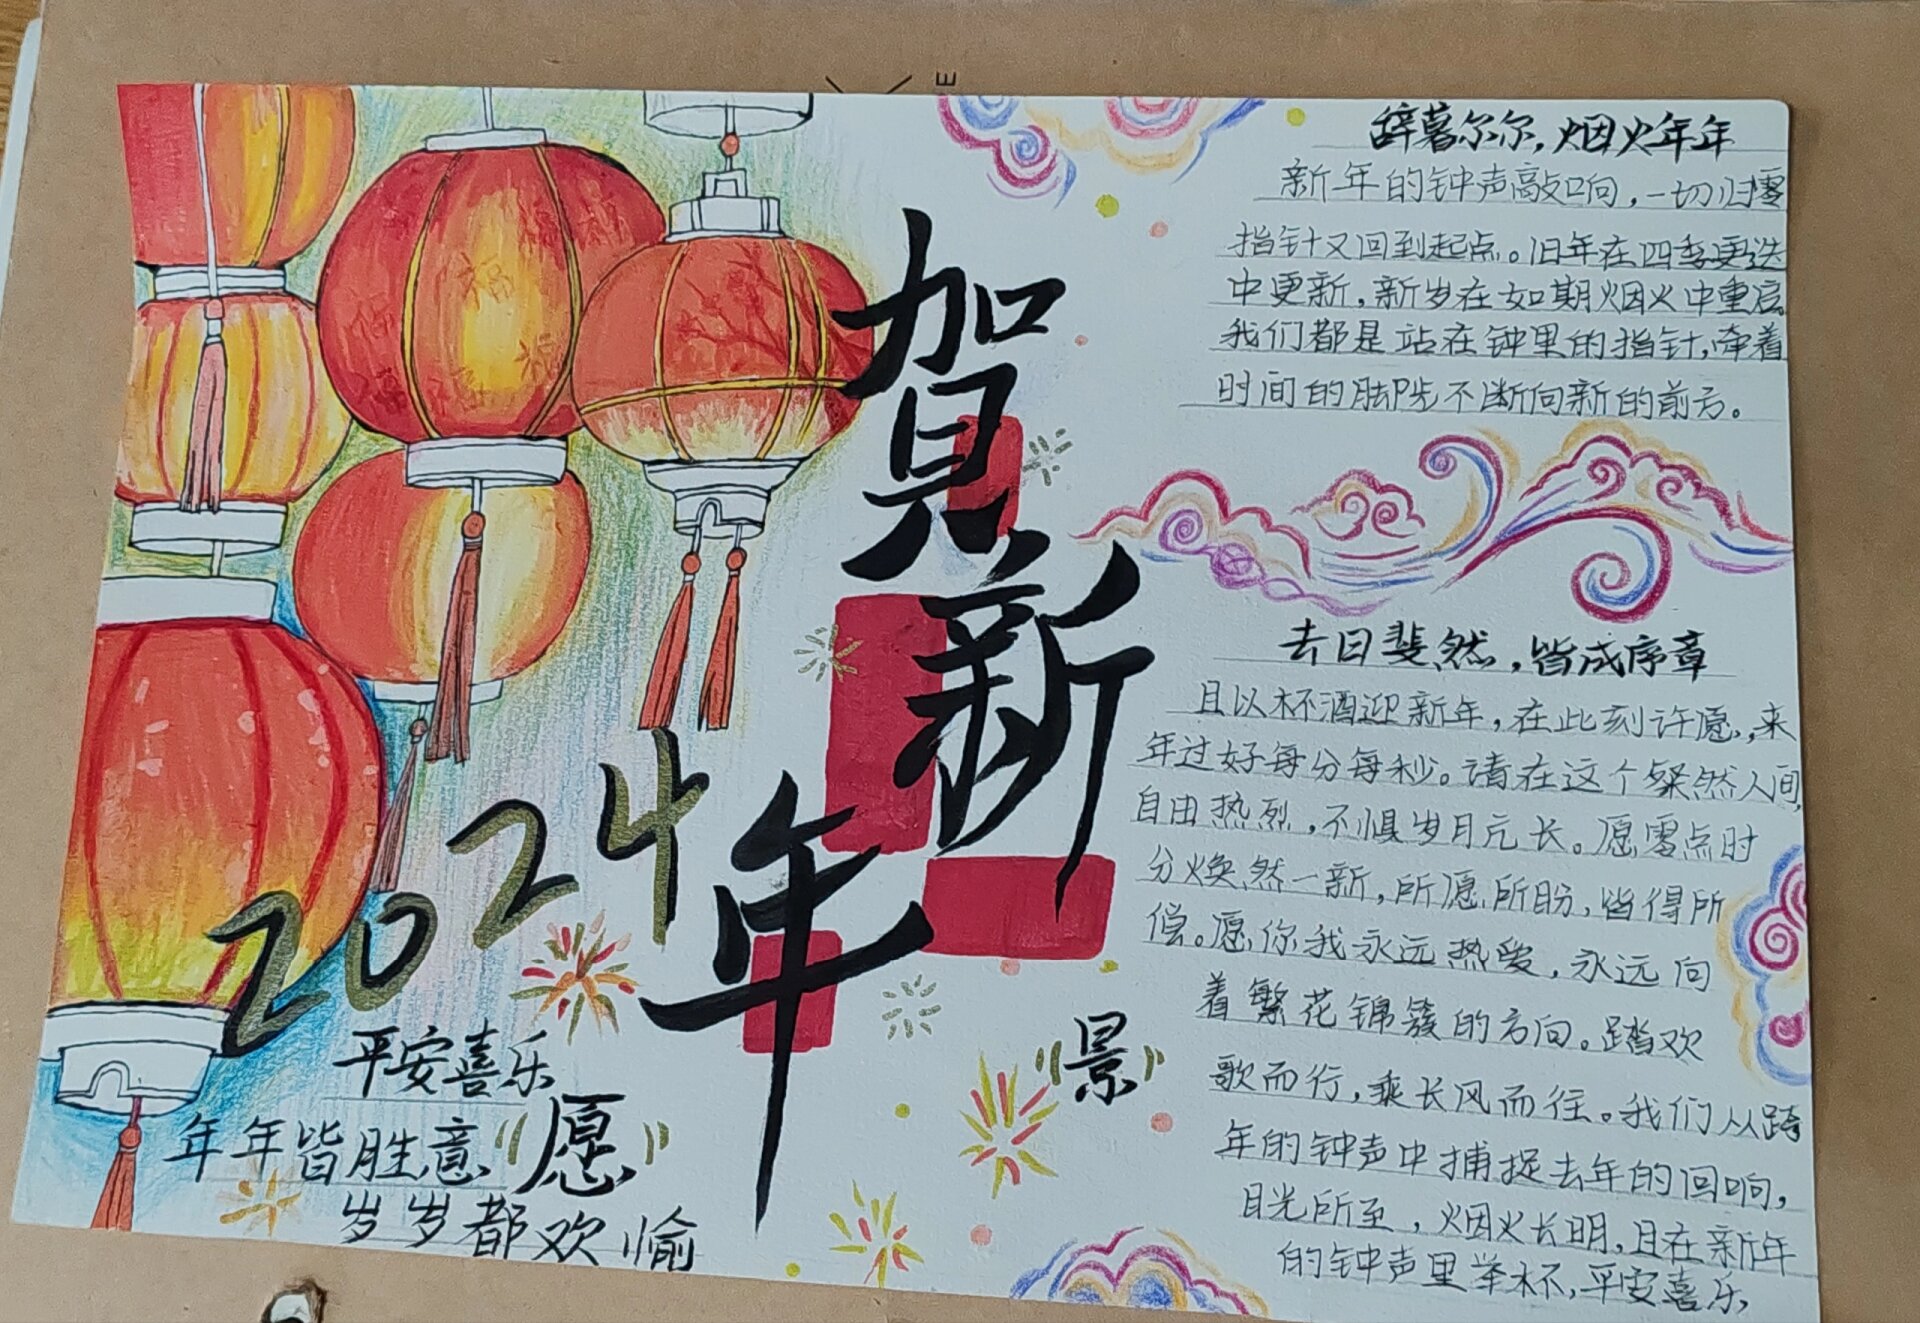 賀新年
2024
平安喜乐
年年皆胜意
"愿"
岁岁都欢愉
"景"
辞暮尔尔，烟火年年
新年的钟声敲响，一切归零
指针又回到起点。旧年在四季更迭
中更新，新岁在如期烟火中重启
我们都是站在钟里的指针，牵着
时间的脚步不断向新的前方。
去日斐然，皆成序章
且以杯酒迎新年，在此刻许愿，来
年过好每分每秒。请在这个粲然人间，
自由热烈，不惧岁月冗长。愿零点时
分焕然一新，所愿所盼，皆得所
偿。愿你我永远热爱，永远向
着繁花锦簇的方向。踏欢
歌而行，乘长风而往。我们从跨
年的钟声中捕捉去年的回响，
目光所至，烟火长明，且在新年
的钟声里举杯，平安喜乐，
E